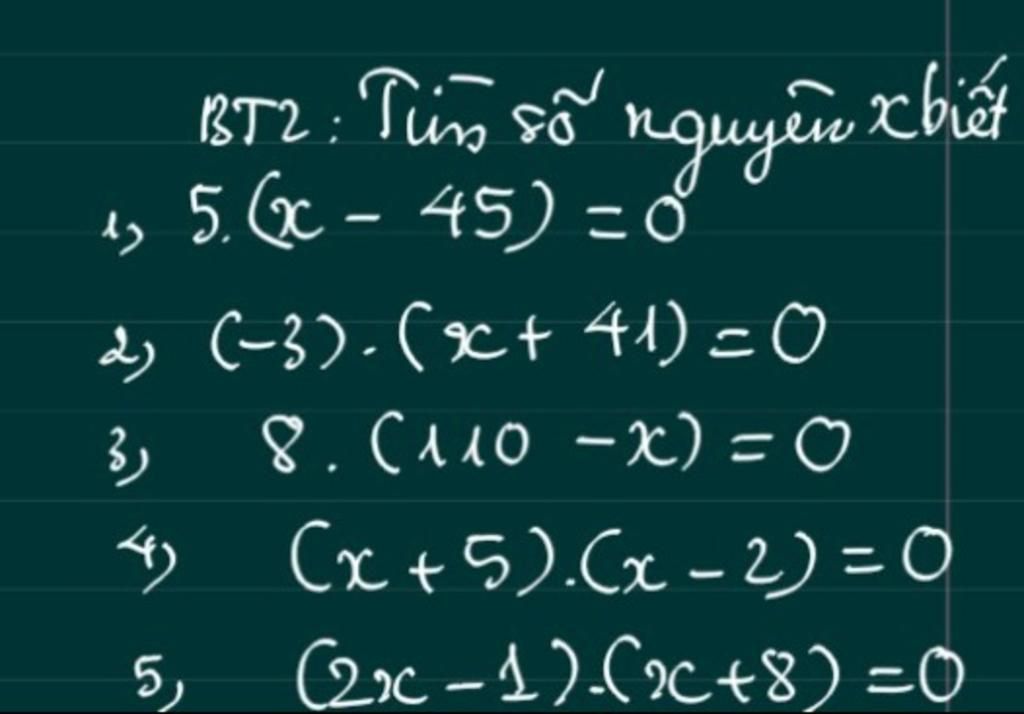 BT2: Tìm số nguyên x biết
1, 5.(x - 45) = 0
2, (-3).(x + 41) = 0
3, 8.(110 - x) = 0
4, (x + 5).(x - 2) = 0
5, (2x - 1).(x + 8) = 0